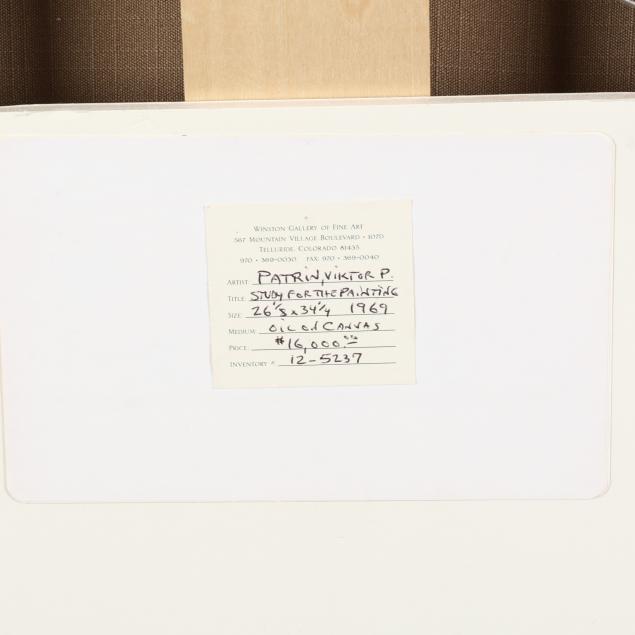 WINSTON GALLERY OF FINE ART
567 MOUNTAIN VILLAGE BOULEVARD • 107D
TELLURIDE, COLORADO 81435
970 • 369-0030 FAX 970 • 369-0040
ARTIST: PATRIN, VIKTOR P.
TITLE: STUDY FOR THE PAINTING
SIZE: 26 1/8 x 34 1/4 1969
MEDIUM: OIL ON CANVAS
PRICE: $16,000.00
INVENTORY #: 12-5237